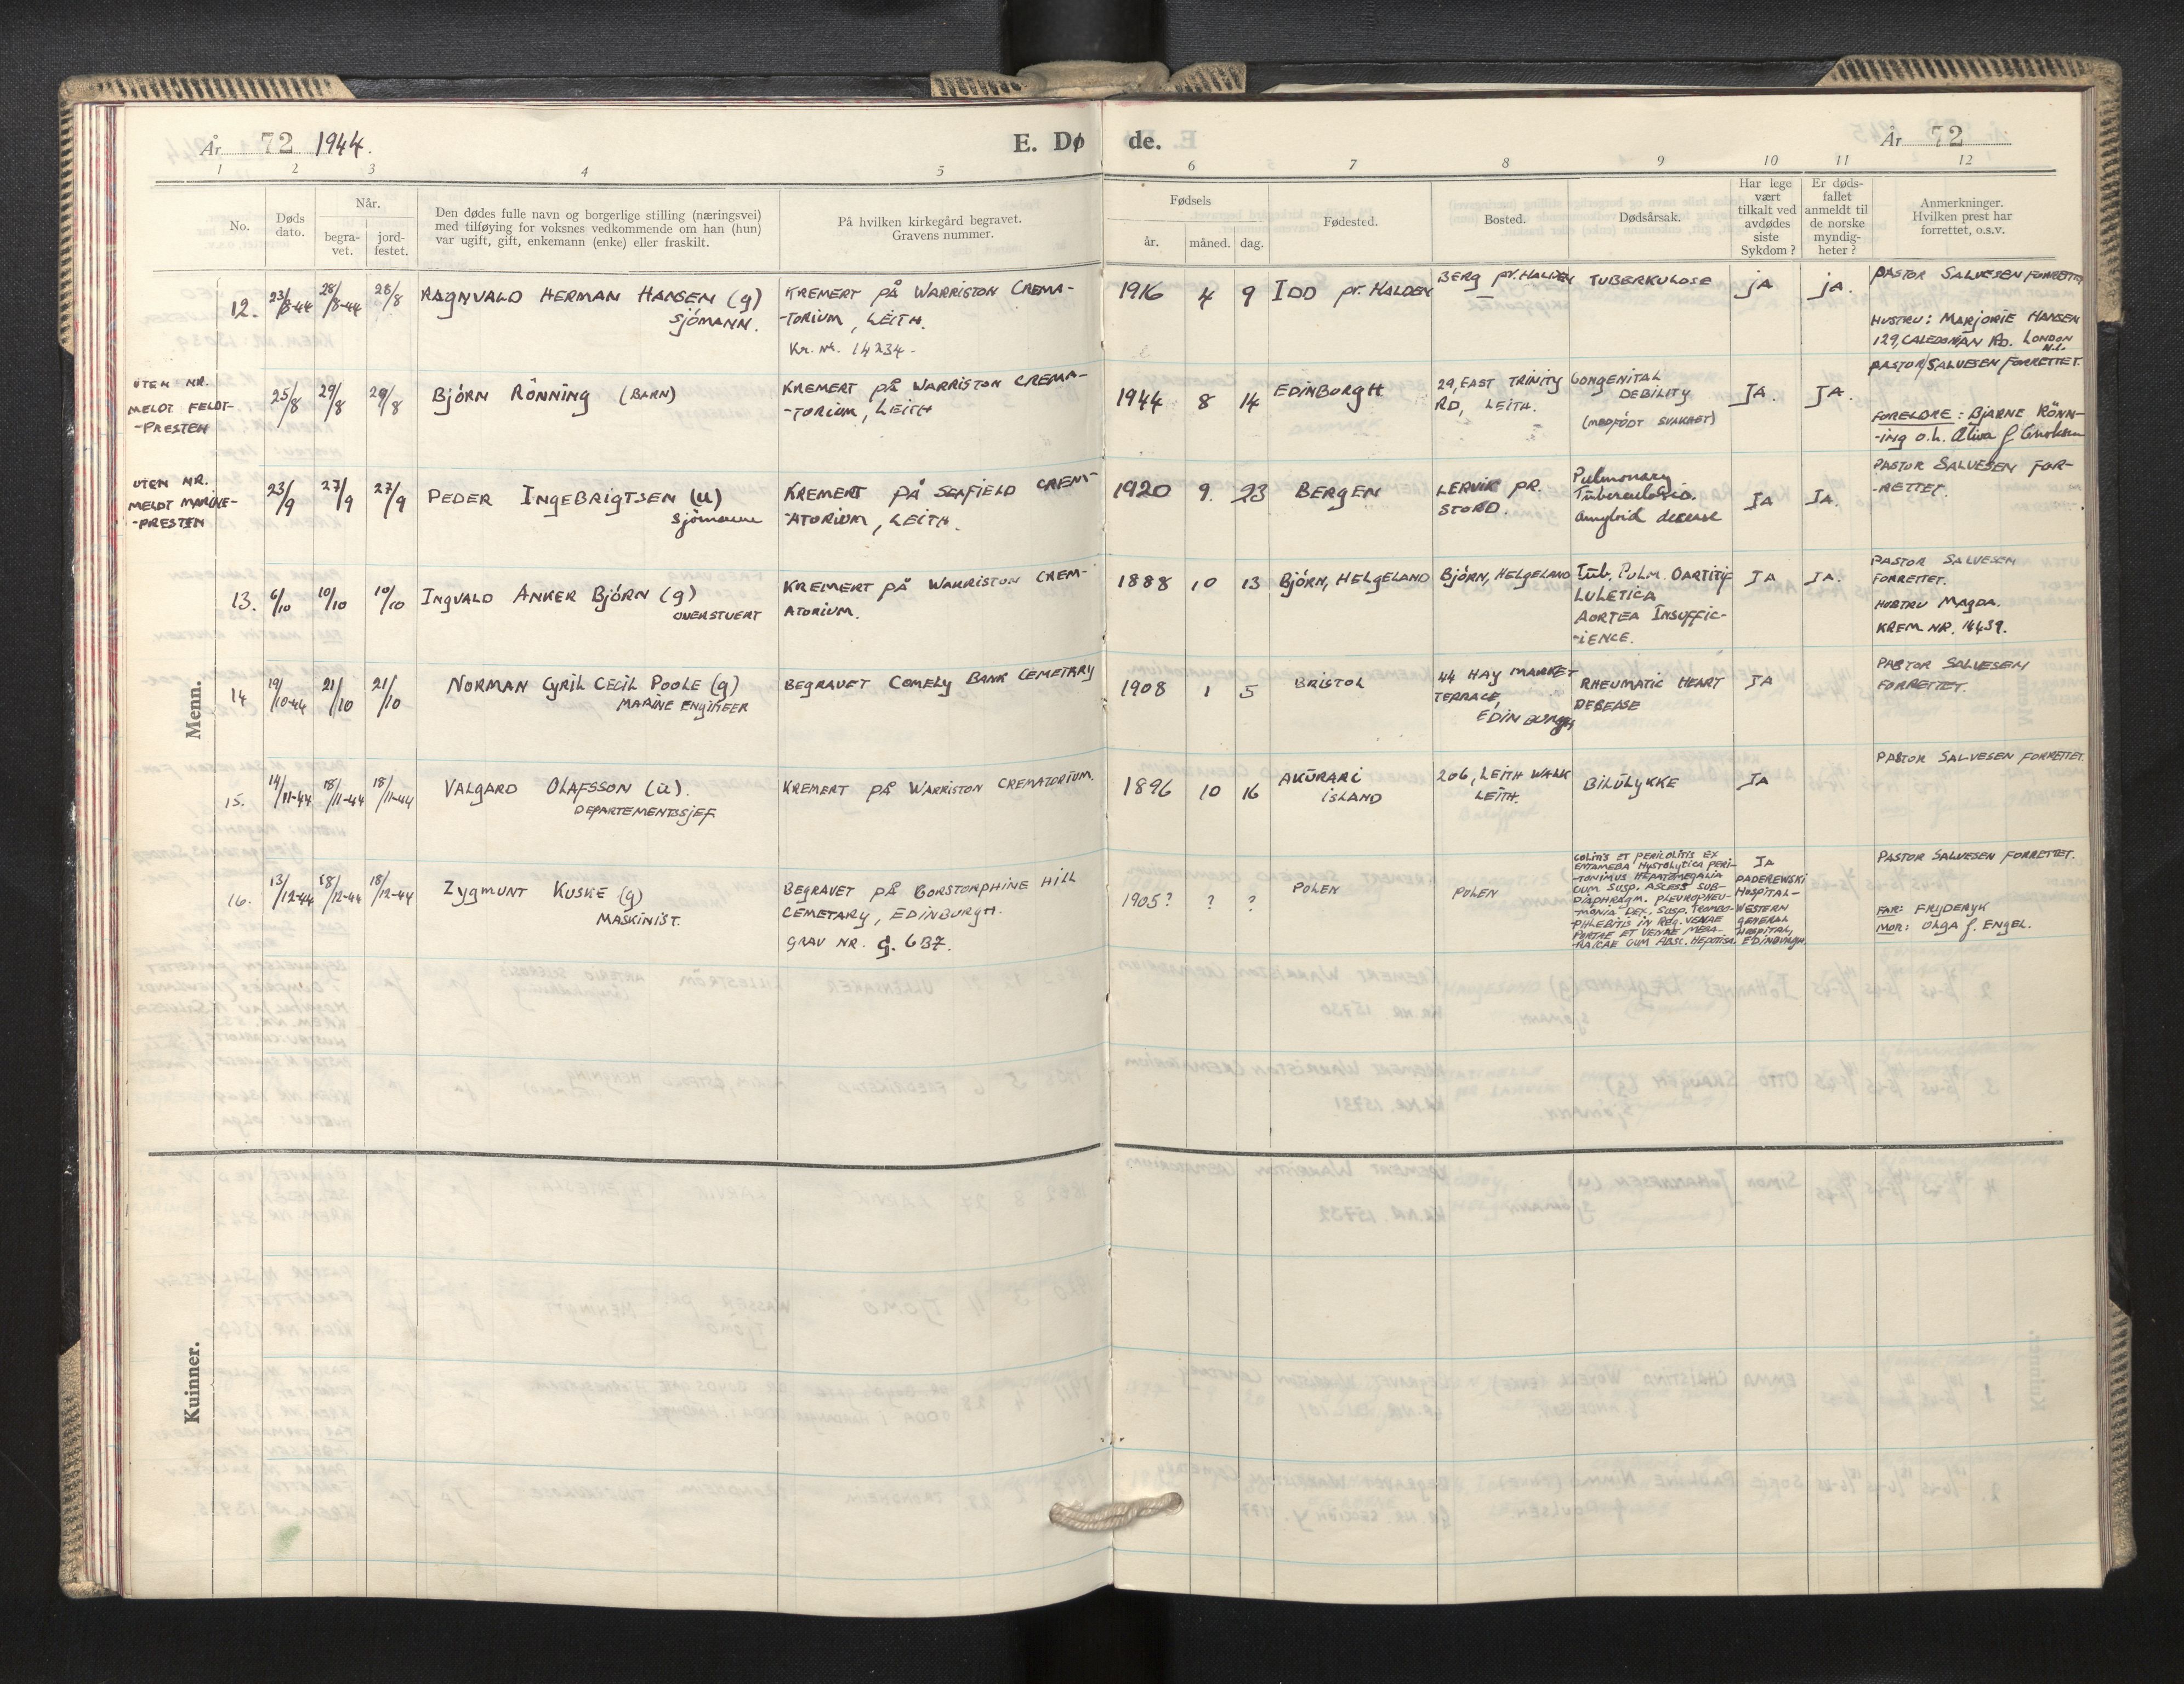 År 72 1944.
E. Døde.
År 72
1 2 3 4 5 6 7 8 9 10 11 12
No.
Døds dato.
Når.
begra-
vet.
jord-
festet.
Den dødes fulle navn og borgerlige stilling (næringsvei)
med tilføying for voksnes vedkommende om han (hun)
var ugift, gift, enkemann (enke) eller fraskilt.
På hvilken kirkegård begravet.
Gravens nummer.
Fødsels
år. måned. dag.
Fødested.
Bosted.
Dødsårsak.
Har lege
vært
tilkalt ved
avdødes
siste
Sykdom?
Er døds-
fallet
anmeldt til
de norske
myndig-
heter?
Anmerkninger.
Hvilken prest har
forrettet, o.s.v.
Menn.
12. 23/8-44 28/8-44 28/8
RAGNVALD HERMAN HANSEN (g)
SJÖMANN.
KREMERT PÅ WARRISTON CREMA-
-TORIUM, LEITH.
Kr. nr. 14234.
1916 4 9
IDD pr. HALDEN
BERG pr. HALDEN
TUBERKULOSE
JA
JA.
PASTOR SALVESEN FORRETTET
HUSTRU: MARJORIE HANSEN
129, CALEDONIAN RD. LONDON
N.1.
UTEN NR.
MELDT FELDT-
-PRESTEN
25/8 29/8 29/8
BJÖRN RÖNNING (BARN)
KREMERT PÅ WARRISTON CREMA-
-TORIUM, LEITH
1944 8 14
EDINBURGH
29, EAST TRINITY
RD, LEITH.
CONGENITAL
DEBILITY
(MEDFÖDT SVAKHET)
JA.
JA.
PASTOR SALVESEN FORRETTET.
FORELDRE: BJARNE RÖNN-
-ing o.h.
UTEN NR.
MELDT MARINE-
-PRESTEN
23/9 27/9 27/9
PEDER INGEBRIGTSEN (u)
sjömann
KREMERT PÅ SEAFIELD CREM-
-ATORIUM, LEITH.
1920 9. 23
BERGEN
LERVIK PR.
STORD.
Pulmonary
Tuberculosis.
Amyloid desease
JA
JA.
PASTOR SALVESEN FOR-
-RETTET.
13. 6/10 10/10 10/10
INGVALD ANKER BJÖRN (g)
OVERSTUERT
KREMERT PÅ WARRISTON CREM-
ATORIUM.
1888 10 13
BJÖRN, HELGELAND
BJÖRN, HELGELAND
TUB. PULM. OARTITIS
LULETICA
AORTEA INSUFFIC-
-IENCE.
JA
JA.
PASTOR SALVESEN
FORRETTET.
HUSTRU MAGDA.
KREM NR. 14439.
14 19/10-44 21/10 21/10
NORMAN CYRIL CECIL POOLE (g)
MARINE ENGINEER
BEGRAVET COMELY BANK CEMETARY
1908 1 5
BRISTOL
44 HAY MARKET
TERRACE,
EDINBURGH
RHEUMATIC HEART
DESEASE
JA
PASTOR SALVESEN
FORRETTET.
15. 14/11-44 18/11-44 18/11-44
VALGARD OLAFSSON (u).
DEPARTEMENTSSJEF
KREMERT PÅ WARRISTON CREMATORIUM.
1896 10 16
AKURARI
ISLAND
206, LEITH WALK
LEITH.
BILULYKKE
JA
PASTOR SALVESEN FORRETTET.
16. 13/12-44 18/12-44 18/12-44
ZYGMUNT KUSKE (g)
MASKINIST.
BEGRAVET PÅ CORSTORPHINE HILL
CEMETARY, EDINBURGH.
GRAV NR. G. 637.
1905? ? ?
POLEN
POLEN
COLITIS ET PERICOLITIS EX
ENTAMEBA HYSTOLYTICA PERI-
-TONIMUS HEPATOMEGALIA
CUM SUSP. ASCESS SUB-
DIAPHRAGM. PLEUROPNEU-
MONIA DEX. SUSP. TROMBO-
-PHLEBITIS IN REG. VENAE
PORTAE ET VENAE MESA-
-RAICAE CUM ABSC. HEPATISA.
JA
PADEREWSKI
HOSPITAL-
WESTERN
GENERAL
HOSPITAL,
EDINBURGH.
PASTOR SALVESEN FORRETTET.
FAR: FRYDERYK
MOR: OLGA f. ENGEL.
Kuinner.